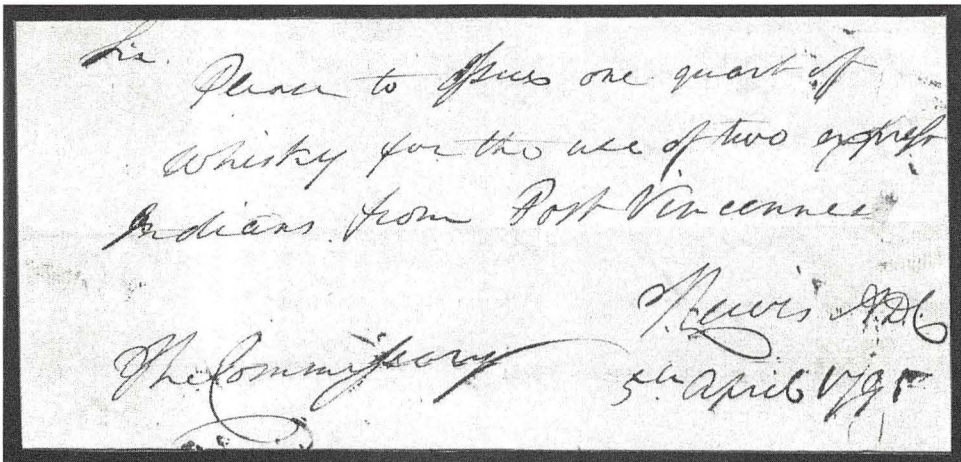 Sir.
Please to Issue one quart of
Whisky for the use of two express
Indians from Post Vincennes
Lewis ADC
The Commissary
5th April 1795